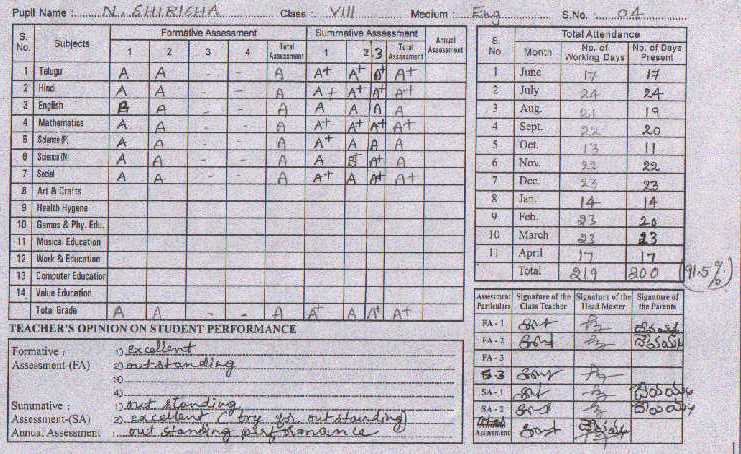 Pupil Name : N. SHIRICHA Class : VIII Medium : Eng S.No. 04
S. No. Subjects Formative Assessment Summative Assessment Annual Assessment
1 2 3 4 Total Assessment 1 2 3 Total Assessment
1 Telugu A A - A A+ A+ A+ A+
2 Hindi A A - - A A+ A+ A+ A+
3 English A A - - A A A A A
4 Mathematics A A - - A A+ A+ A+ A+
5 Science(P) A A - - A A+ A A A
6 Science(N) A A - - A A A+ A
7 Social A A - - A A+ A A+ A+
8 Art & Crafts
9 Health Hygene
10 Games & Phy. Edu.
11 Musical Education
12 Work & Education
13 Computer Education
14 Value Education
Total Grade A A - - A A+ A A+ A+
TEACHER'S OPINION ON STUDENT PERFORMANCE
Formative : 1) excellent
Assessment-(FA) 2) outstanding
3)
4)
Summative : 1) out standing
Assessment-(SA) 2) excellent (try for outstanding)
Annual Assessment : out standing performance
S. No. Month Total Attendance
No. of Working Days No. of Days Present
1 June 17 17
2 July 24 24
3 Aug. 21 19
4 Sept. 22 20
5 Oct. 13 11
6 Nov. 22 22
7 Dec. 23 23
8 Jan. 14 14
9 Feb. 23 20
10 March 23 23
11 April 17 17
Total 219 200 (91.5%)
Assessment Particulars Signature of the Class Teacher Signature of the Head Master Signature of the Parents
FA - 1
FA - 2
FA - 3
S-3
SA - 1
SA - 2
Assessment